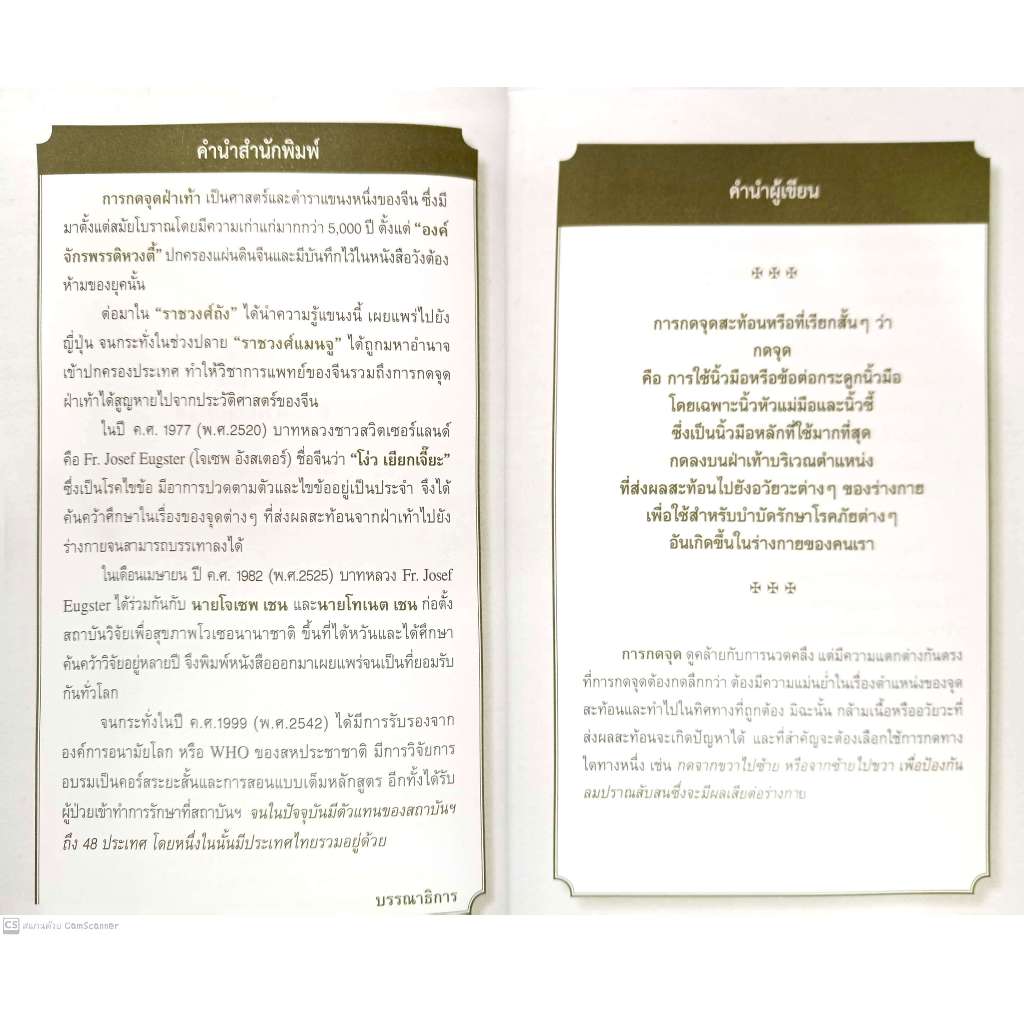 คำนำสำนักพิมพ์
การกดจุดฝ่าเท้า เป็นศาสตร์และตำราแขนงหนึ่งของจีน ซึ่งมี
มาตั้งแต่สมัยโบราณโดยมีความเก่าแก่มากกว่า 5,000 ปี ตั้งแต่ “องค์
จักรพรรดิหวงตี้” ปกครองแผ่นดินจีนและมีบันทึกไว้ในหนังสือวังต้อง
ห้ามของยุคนั้น
ต่อมาใน “ราชวงศ์ถัง” ได้นำความรู้แขนงนี้ เผยแพร่ไปยัง
ญี่ปุ่น จนกระทั่งในช่วงปลาย “ราชวงศ์แมนจู” ได้ถูกมหาอำนาจ
เข้าปกครองประเทศ ทำให้วิชาการแพทย์ของจีนรวมถึงการกดจุด
ฝ่าเท้าได้สูญหายไปจากประวัติศาสตร์ของจีน
ในปี ค.ศ. 1977 (พ.ศ.2520) บาทหลวงชาวสวิตเซอร์แลนด์
คือ Fr. Josef Eugster (โจเซพ อังสเตอร์) ชื่อจีนว่า “โง่ว เยียกเจี๊ยะ”
ซึ่งเป็นโรคไขข้อ มีอาการปวดตามตัวและไขข้ออยู่เป็นประจำ จึงได้
ค้นคว้าศึกษาในเรื่องของจุดต่างๆ ที่ส่งผลสะท้อนจากฝ่าเท้าไปยัง
ร่างกายจนสามารถบรรเทาลงได้
ในเดือนเมษายน ปี ค.ศ. 1982 (พ.ศ.2525) บาทหลวง Fr. Josef
Eugster ได้ร่วมกันกับ นายโจเซพ เชน และนายโทเนต เชน ก่อตั้ง
สถาบันวิจัยเพื่อสุขภาพโวเซอนานาชาติ ขึ้นที่ไต้หวันและได้ศึกษา
ค้นคว้าวิจัยอยู่หลายปี จึงพิมพ์หนังสือออกมาเผยแพร่จนเป็นที่ยอมรับ
กันทั่วโลก
จนกระทั่งในปี ค.ศ.1999 (พ.ศ.2542) ได้มีการรับรองจาก
องค์การอนามัยโลก หรือ WHO ของสหประชาชาติ มีการวิจัยการ
อบรมเป็นคอร์สระยะสั้นและการสอนแบบเต็มหลักสูตร อีกทั้งได้รับ
ผู้ป่วยเข้าทำการรักษาที่สถาบันฯ จนในปัจจุบันมีตัวแทนของสถาบันฯ
ถึง 48 ประเทศ โดยหนึ่งในนั้นมีประเทศไทยรวมอยู่ด้วย
บรรณาธิการ
คำนำผู้เขียน
การกดจุดสะท้อนหรือที่เรียกสั้นๆ ว่า
กดจุด
คือ การใช้นิ้วมือหรือข้อต่อกระดูกนิ้วมือ
โดยเฉพาะนิ้วหัวแม่มือและนิ้วชี้
ซึ่งเป็นนิ้วมือหลักที่ใช้มากที่สุด
กดลงบนฝ่าเท้าบริเวณตำแหน่ง
ที่ส่งผลสะท้อนไปยังอวัยวะต่างๆ ของร่างกาย
เพื่อใช้สำหรับบำบัดรักษาโรคภัยต่างๆ
อันเกิดขึ้นในร่างกายของคนเรา
การกดจุด ดูคล้ายกับการนวดคลึง แต่มีความแตกต่างกันตรง
ที่การกดจุดต้องกดลึกกว่า ต้องมีความแม่นยำในเรื่องตำแหน่งของจุด
สะท้อนและทำไปในทิศทางที่ถูกต้อง มิฉะนั้น กล้ามเนื้อหรืออวัยวะที่
ส่งผลสะท้อนจะเกิดปัญหาได้ และที่สำคัญจะต้องเลือกใช้การกดทาง
ใดทางหนึ่ง เช่น กดจากขวาไปซ้าย หรือจากซ้ายไปขวา เพื่อป้องกัน
ลมปราณสับสนซึ่งจะมีผลเสียต่อร่างกาย
CS สแกนด้วย CamScanner